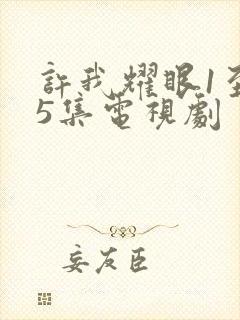 許我耀眼1至
5集電視劇
妄友臣